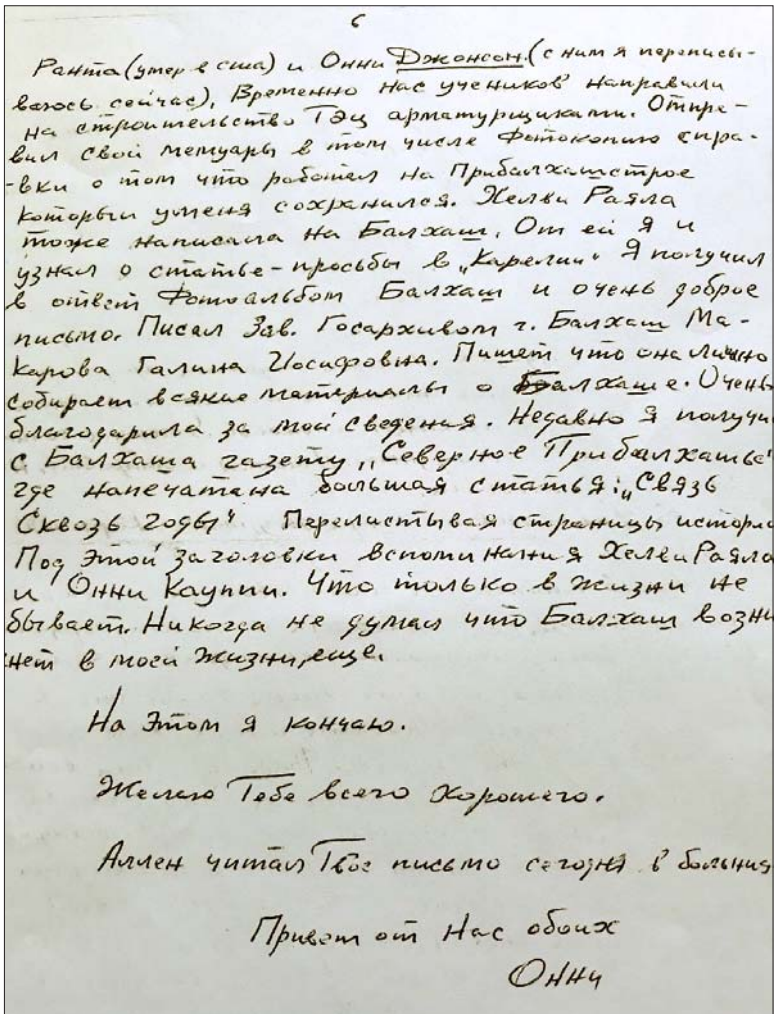 6
Ранта (умер в сша) и Онни Джонсон. (с ним я переписы-
ваюсь сейчас), Временно нас учеников направили
на строительство Тэц арматурщиками. Отпра-
вил свой мемуары в том числе Фотокопию спра-
-вки о том что работал на Прибалхашстрое
которыи уменя сохранился. Хелви Раяла
тоже написала на Балхаш. От ей я и
узнал о статье-просьбы в „Карелии" Я получил
в ответ Фотоальбом Балхаш и очень доброе
письмо. Писал Зав. Госархивом г. Балхаш Ма-
карова Галина Иосифовна. Пишет что она лично
собирает всякие материалы о Балхаше. Очень
благодарила за мои сведения. Недавно я получи
с Балхаша газету „Северное Прибалхашье"
где напечатана большая статья: „Связь
Сквозь годы" Перелистывая страницы истори
Под этой заголовки вспоминания Хелви Раяла
и Онни Кауппи. Что только в жизни не
бывает. Никогда не думал что Балхаш возни
нет в моей жизни, еще.
На этом я кончаю.
Желаю Тебе всего хорошего.
Аллен читал Твое письмо сегодня в больниц
Привет от Нас обоих
Онни